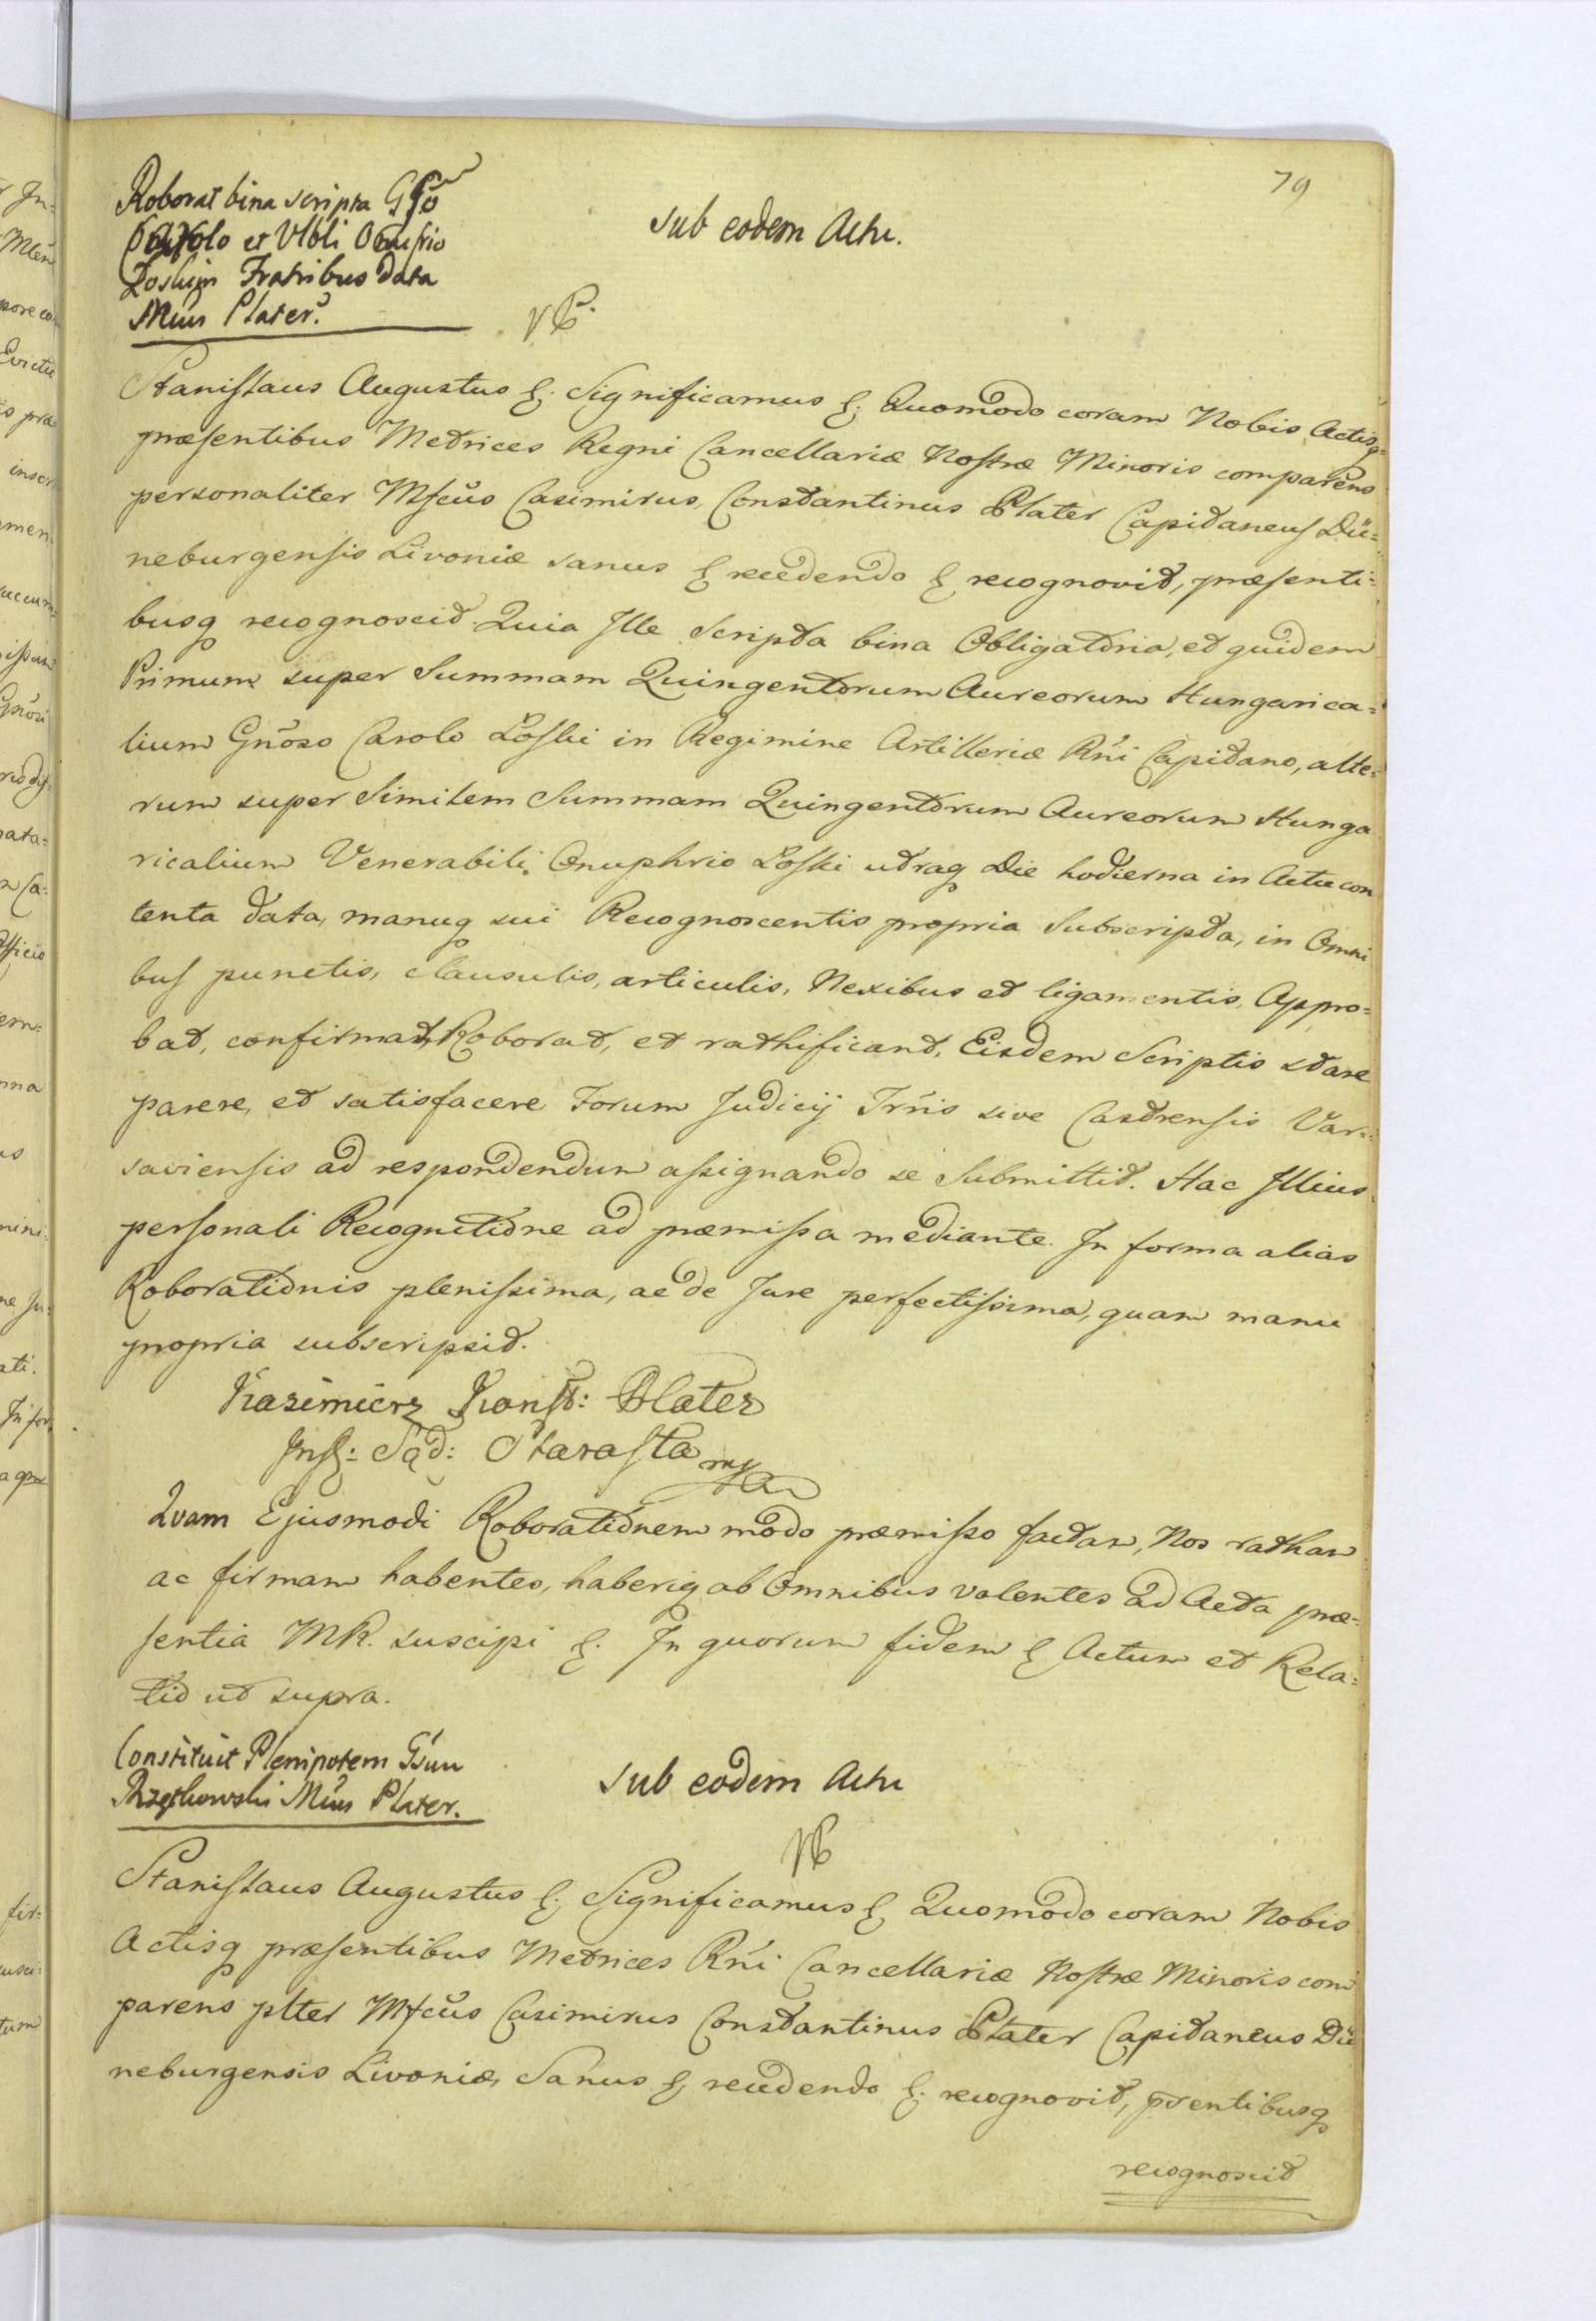 79
Roborat bina scripta Gso
Carolo et Vlbli Onufrio
Łoskim Fratribus data
Mcus Plater.
Sub eodem Actu.
Stanislaus Augustus &. Significamus &. Quomodo coram Nobis Actisq=
præsentibus Metrices Regni Cancellariæ Nostræ Minoris comparens
personaliter Mfcus Casimirus Constantinus Plater Capitaneus Dü=
neburgensis Livoniæ sanus & recedendo & recognovit, præsenti=
busq recognoscit. Quia Ille Scripta bina Obligatoria, et quidem
Primum super Summam Quingentorum Aureorum Hungarica=
lium Gnoso Carolo Łoski in Regimine Artilleriæ Rni Capitano, alte=
rum super Similem Summam Quingentorum Aureorum Hunga
ricalium Venerabili Onuphrio Łoski utraq Die hodierna in Actu con
tenta data, manuq sui Recognoscentis propria Subscripta, in Omni
bus punctis, clausulis, articulis, Nexibus et ligamentis, Appro=
bat, confirmat, Roborat, et rathificant, Eisdem Scriptis stare
parere, et satisfacere Forum Judicij Trris sive Castrensis Var=
saviensis ad respondendum assignando se Submittit. Hac Illius
personali Recognitione ad præmissa mediante. In forma alias
Roborationis plenissima, ac de Jure perfectissima, quam manu
propria subscripsit.
Kazimierz Konst: Plater
Inf: Sąd: Starosta mp
Quam Ejusmodi Roborationem modo præmisso factam, Nos ratham
ac firmam habentes, haberiq ab Omnibus volentes ad Acta præ=
sentia MR. suscipi &. In quorum fidem & Actum et Rela=
tio ut supra.
Constituit Plenipotem Gsum
Rzętkowski Mcus Plater.
Sub eodem Actu
Stanislaus Augustus &. Significamus & Quomodo coram Nobis
Actisq præsentibus Metrices Rni Cancellariæ Nostræ Minoris com
parens plter Mfcus Casimirus Constantinus Plater Capitaneus Dü
neburgensis Livoniæ, Sanus & recedendo &. recognovit, prentibusq
recognoscit